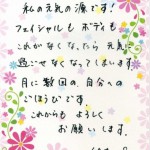 私の元気の源です!
フェイシャルも ボディも
これがなくなったら 元気に
過ごせなくなってしまいます。
月に数回の、自分への
ごほうびです。
これからも よろしく
お願いします。